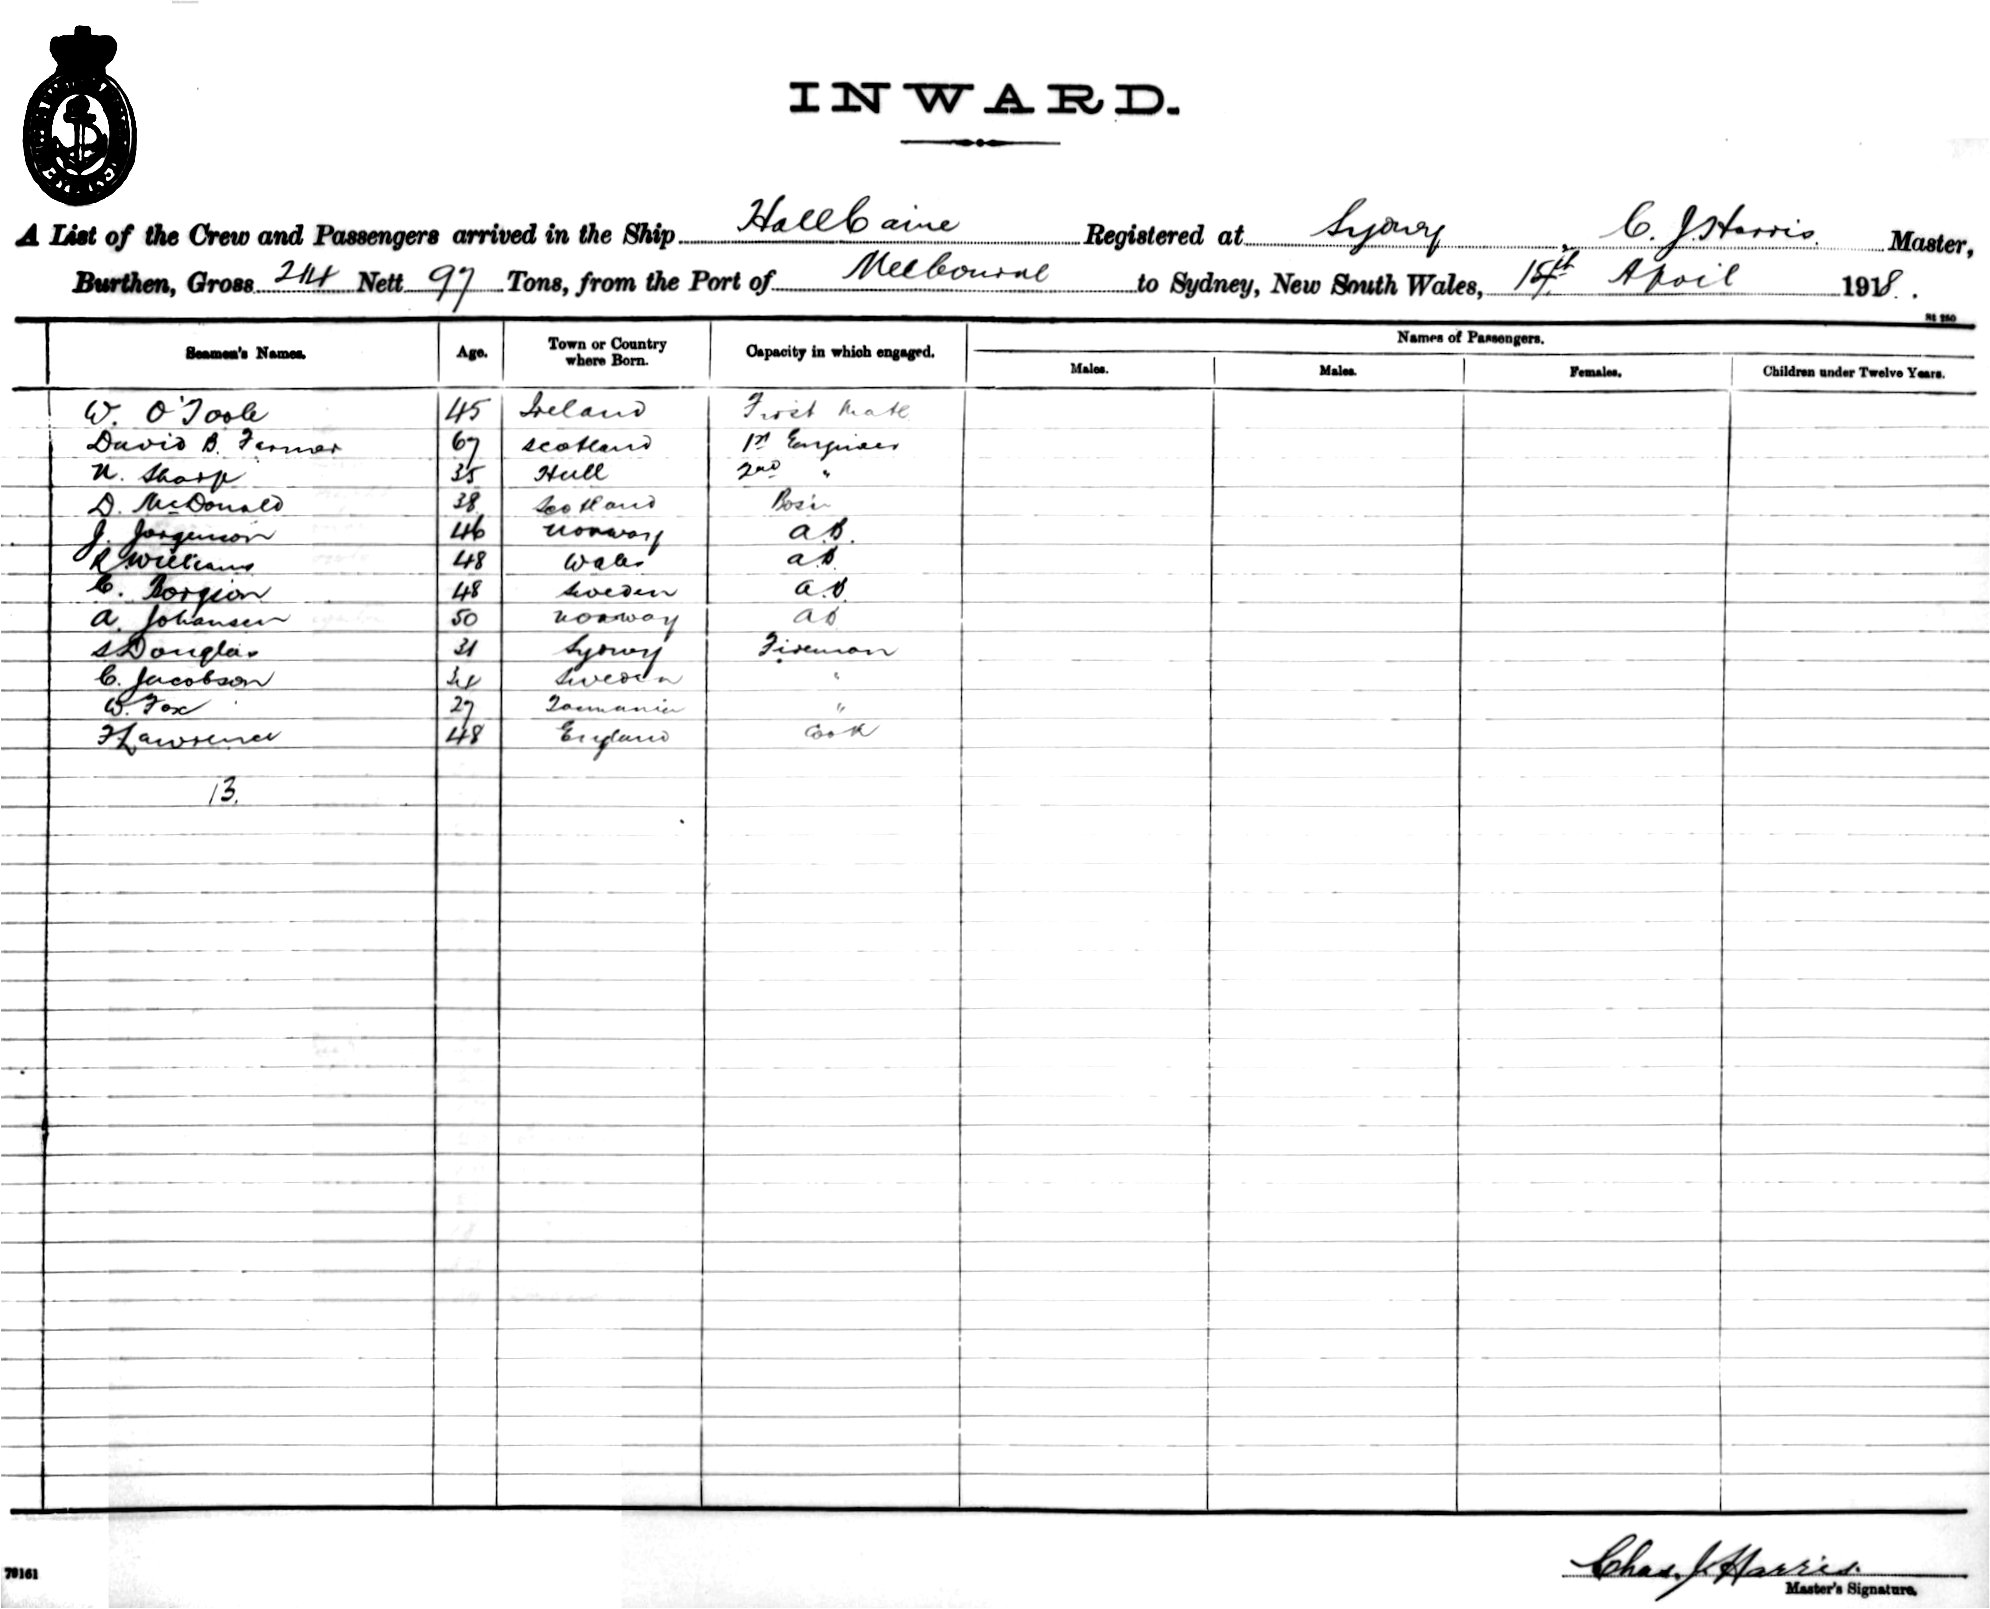 INWARD.
A List of the Crew and Passengers arrived in the Ship Hall Caine Registered at Sydney, C. J. Harris. Master,
Burthen, Gross 244 Nett 97 Tons, from the Port of Melbourne to Sydney, New South Wales, 15th April 1918.
Seamen's Names. Age. Town or Country where Born. Capacity in which engaged. Names of Passengers.
Males. Males. Females. Children under Twelve Years.
W. O'Toole 45 Ireland First Mate
David B. Fermer 67 Scotland 1st Engineer
N. Sharp 35 Hull 2nd "
D. McDonald 38 Scotland Bosin
J. Jorgenson 46 Norway A.B.
R Williams 48 Wales A.B
C. Borgson 48 Sweden A.B
A. Johansen 50 Norway AB
S Douglas 31 Sydney Fireman
C. Jacobson 34 Sweden "
W. Fox 27 Tasmania "
F Lawrence 48 England Cook
13.
79161
Chas. J. Harris.
Master's Signature.